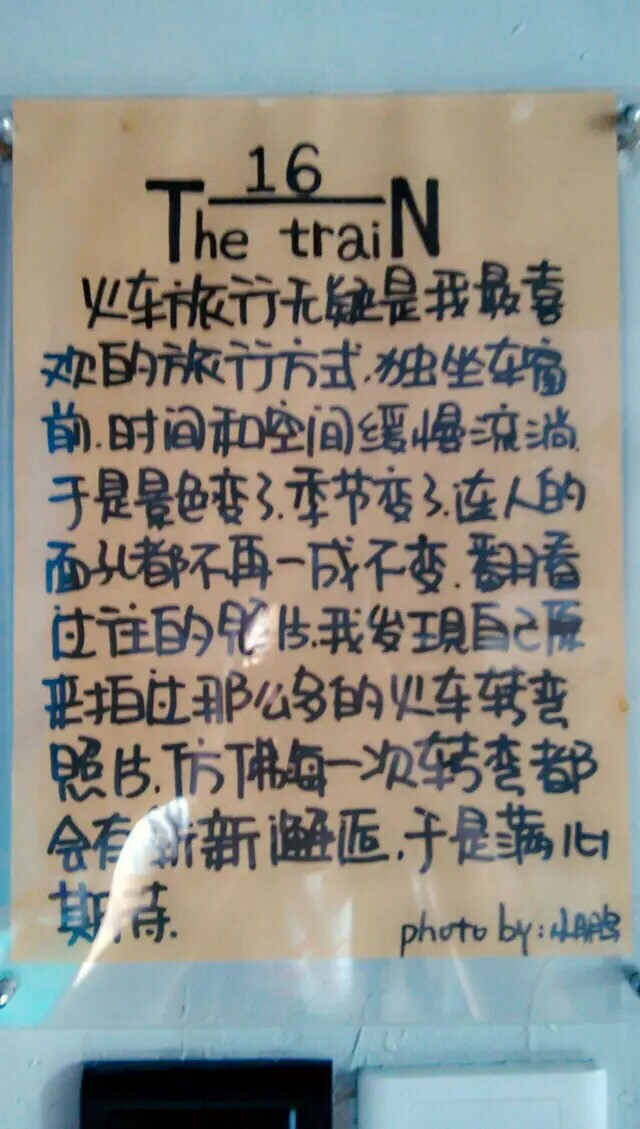 16
The traiN
火车旅行无疑是我最喜
欢的旅行方式.独坐车窗
前.时间和空间缓慢流淌.
于是景色变了.季节变了.连人的
面孔都不再一成不变.翻看
过往的照片.我发现自己原
来拍过那么多的火车转弯
照片.仿佛每一次转弯都
会有崭新邂逅.于是满心
期待.
photo by:小鹏